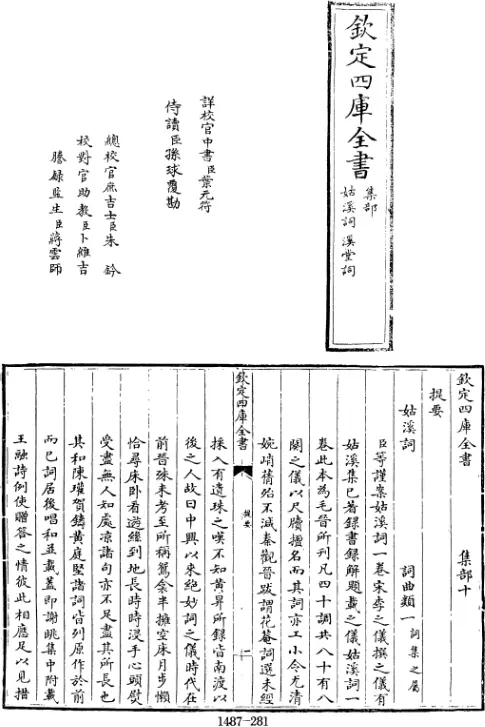 欽定四庫全書
集部
姑溪詞 溪堂詞
詳校官中書臣葉元符
侍讀臣孫球覆勘
總校官庶吉士臣朱鈐
校對官助教臣卜維吉
謄錄監生臣蔣雲師
欽定四庫全書 集部十
提要 詞曲類一 詞集之屬
姑溪詞
臣等謹案姑溪詞一卷宋李之儀撰之儀有
姑溪集已著録書録解題載之儀姑溪詞一
卷此本為毛晉所刊凡四十調共八十有八
闋之儀以尺牘擅名而其詞亦工小令尤清
婉峭蒨殆不減秦觀晉跋謂花菴詞選未經
欽定四庫全書
提要
二
採入有遺珠之嘆不知黄昇所録皆南渡以
後之人故曰中興以來絶妙詞之儀時代在
前晉殊未考至所稱鴛衾半擁空床月步懶
恰尋床卧看遊絲到地長時時浸手心頭熨
受盡無人知處凉諸句亦不足盡其所長也
其和陳瓘賀鑄黄庭堅諸詞皆列原作於前
而已詞居後唱和並載蓋即謝眺集中附載
王融詩例使贈答之情彼此相應足以見措
1487-281